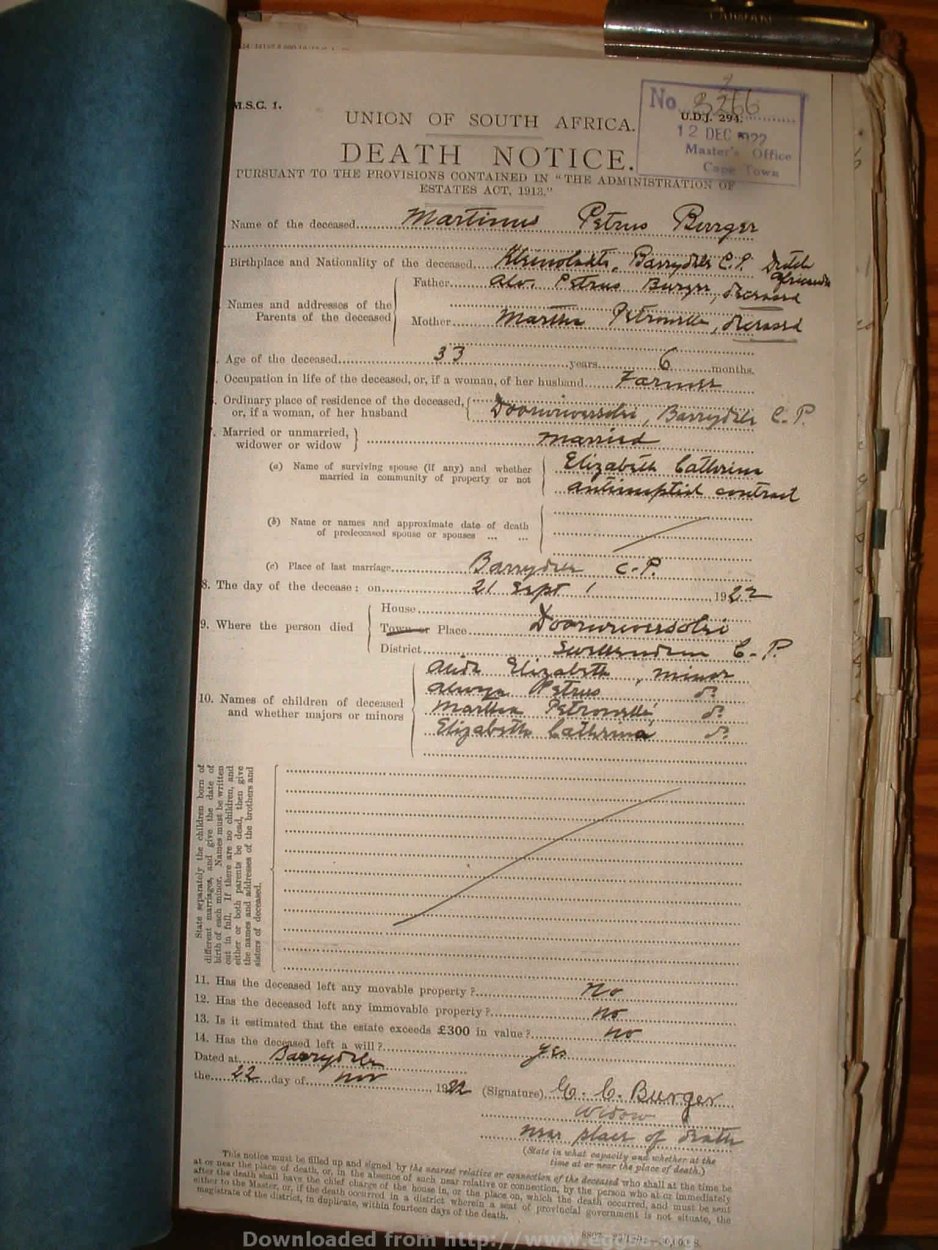 M.S.C. 1.
No. 3266
U.D.J. 294.
12 DEC 1922
Master's Office
Cape Town
UNION OF SOUTH AFRICA.
DEATH NOTICE.
PURSUANT TO THE PROVISIONS CONTAINED IN "THE ADMINISTRATION OF
ESTATES ACT, 1913."
Name of the deceased Martinus Petrus Burger
Birthplace and Nationality of the deceased Barrydale C.P. Dutch
Names and addresses of the Parents of the deceased
Father Petrus Burger, deceased
Mother Martha Petronella, deceased
Age of the deceased 33 years 6 months.
Occupation in life of the deceased, or, if a woman, of her husband Farmer
Ordinary place of residence of the deceased,
or, if a woman, of her husband Barrydale C.P.
Married or unmarried,
widower or widow married
(a) Name of surviving spouse (if any) and whether
married in community of property or not
Elizabeth Cathrina
contract
(b) Name or names and approximate date of death
of predeceased spouse or spouses ... ...
(c) Place of last marriage Barrydale C.P.
8. The day of the decease: on 21 Sept 1922
9. Where the person died
House
Town or Place
District Swellendam C.P.
10. Names of children of deceased
and whether majors or minors
Elizabeth, minor
Petrus do
Martha Petronella do
Elizabeth Cathrina do
State separately the children born of
different marriages, and give the date of
birth of each minor. Names must be written
out in full. If there are no children, and
either or both parents be dead, then give
the names and addresses of the brothers and
sisters of deceased.
11. Has the deceased left any movable property? No
12. Has the deceased left any immovable property? no
13. Is it estimated that the estate exceeds £300 in value? no
14. Has the deceased left a will? yes
Dated at Barrydale
the 22 day of Nov 1922
(Signature) E. C. Burger
widow
near place of death
(State in what capacity and whether at the
time at or near the place of death.)
This notice must be filled up and signed by the nearest relative or connection of the deceased who shall at the time be
at or near the place of death, or, in the absence of such near relative or connection, by the person who at or immediately
after the death shall have the chief charge of the house in, or the place on, which the death occurred, and must be sent
either to the Master, or, if the death occurred in a district wherein a seat of provincial government is not situate, the
magistrate of the district, in duplicate, within fourteen days of the death.
Downloaded from http://www.eggsa.org